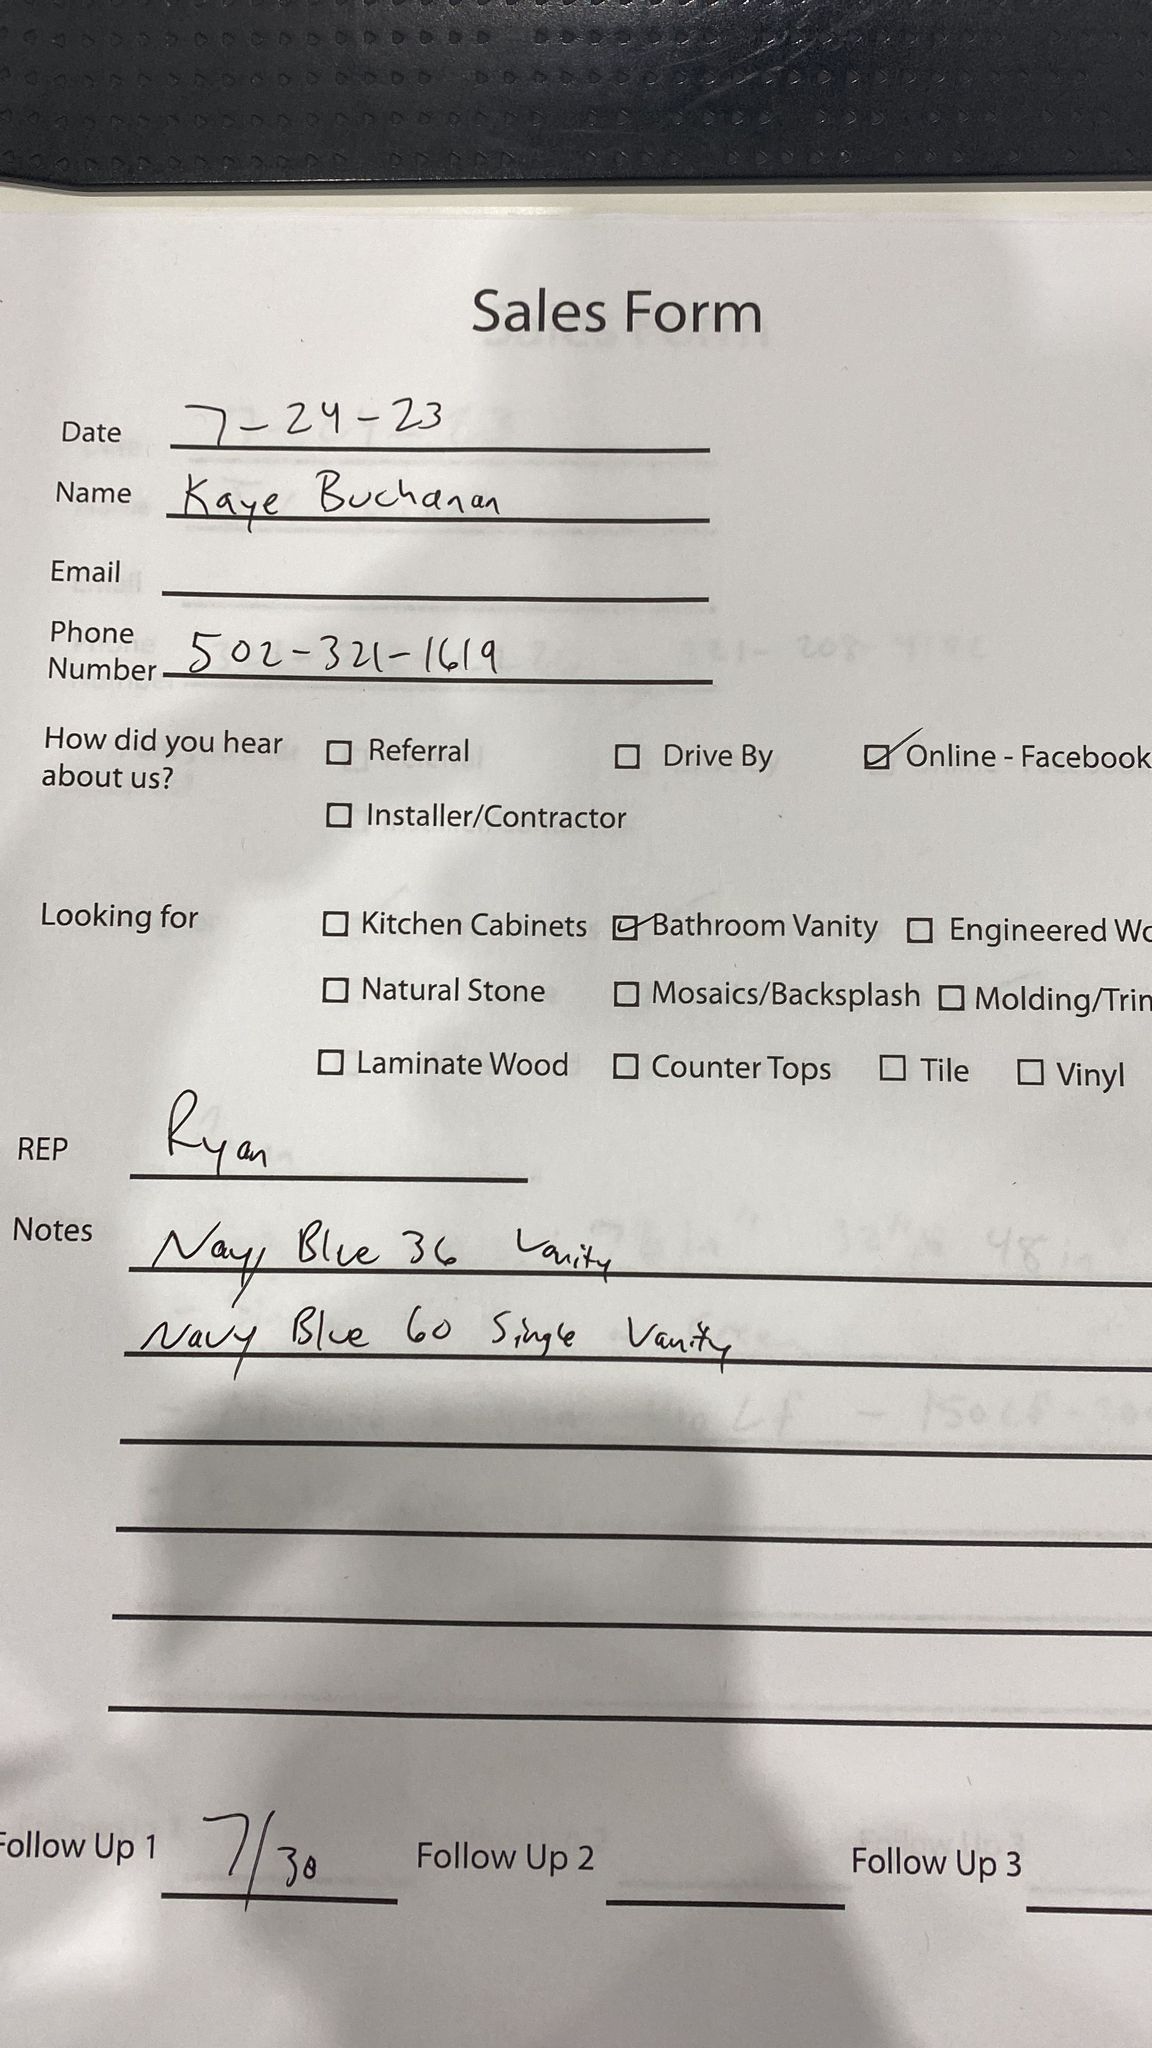 Sales Form
Date 7-24-23
Name Kaye Buchanan
Email
Phone
Number 502-321-1619
How did you hear about us? ☐ Referral ☐ Drive By ☑ Online - Facebook
☐ Installer/Contractor
Looking for ☐ Kitchen Cabinets ☑ Bathroom Vanity ☐ Engineered Wo
☐ Natural Stone ☐ Mosaics/Backsplash ☐ Molding/Trim
☐ Laminate Wood ☐ Counter Tops ☐ Tile ☐ Vinyl
REP Ryan
Notes Navy Blue 36 Vanity
Navy Blue 60 Single Vanity
Follow Up 1 7/30 Follow Up 2 Follow Up 3